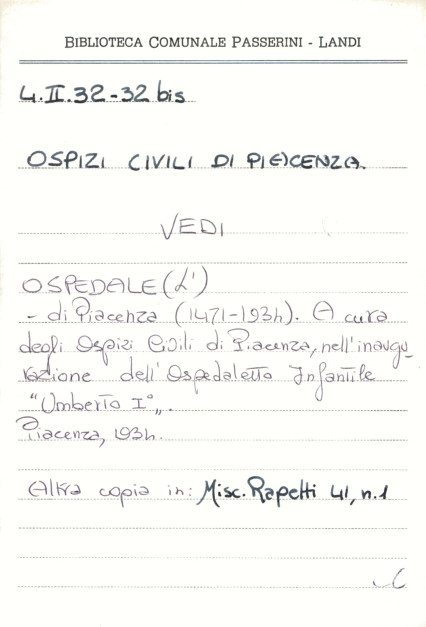 BIBLIOTECA COMUNALE PASSERINI - LANDI
4.II.32-32 bis
OSPIZI CIVILI DI PIACENZA.
VEDI
OSPEDALE (L')
- di Piacenza (1471-1934). A cura
degli Ospizi Civili di Piacenza, nell'inaugu-
razione dell'Ospedaletto Infantile
"Umberto I°".
Piacenza, 1934.
Altra copia in: Misc. Rapetti 41, n.1